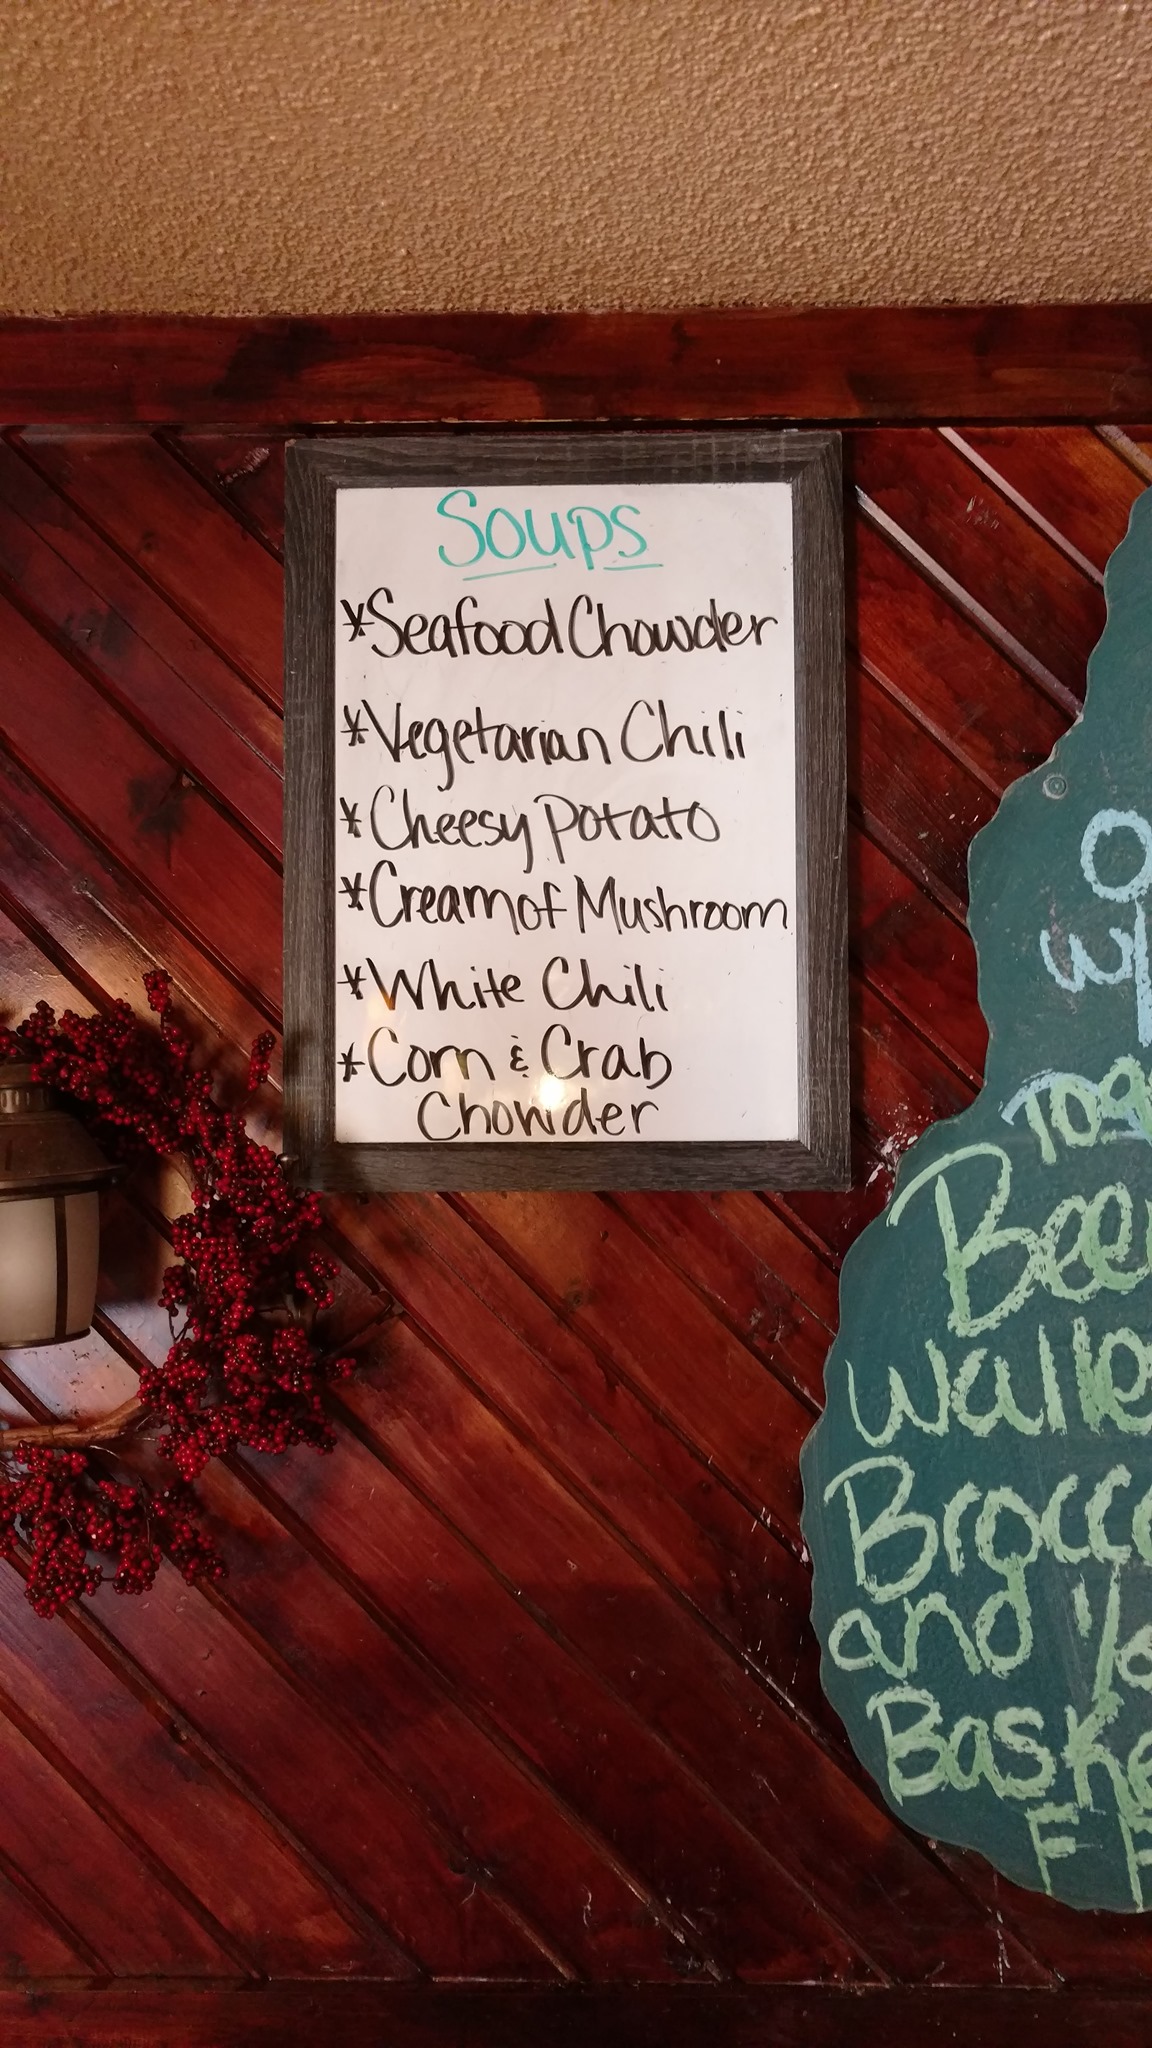 Soups
*Seafood Chowder
*Vegetarian Chili
*Cheesy Potato
*Cream of Mushroom
*White Chili
*Corn & Crab
Chowder
Bee
Walle
Brocc
and 1/
Baske
F F